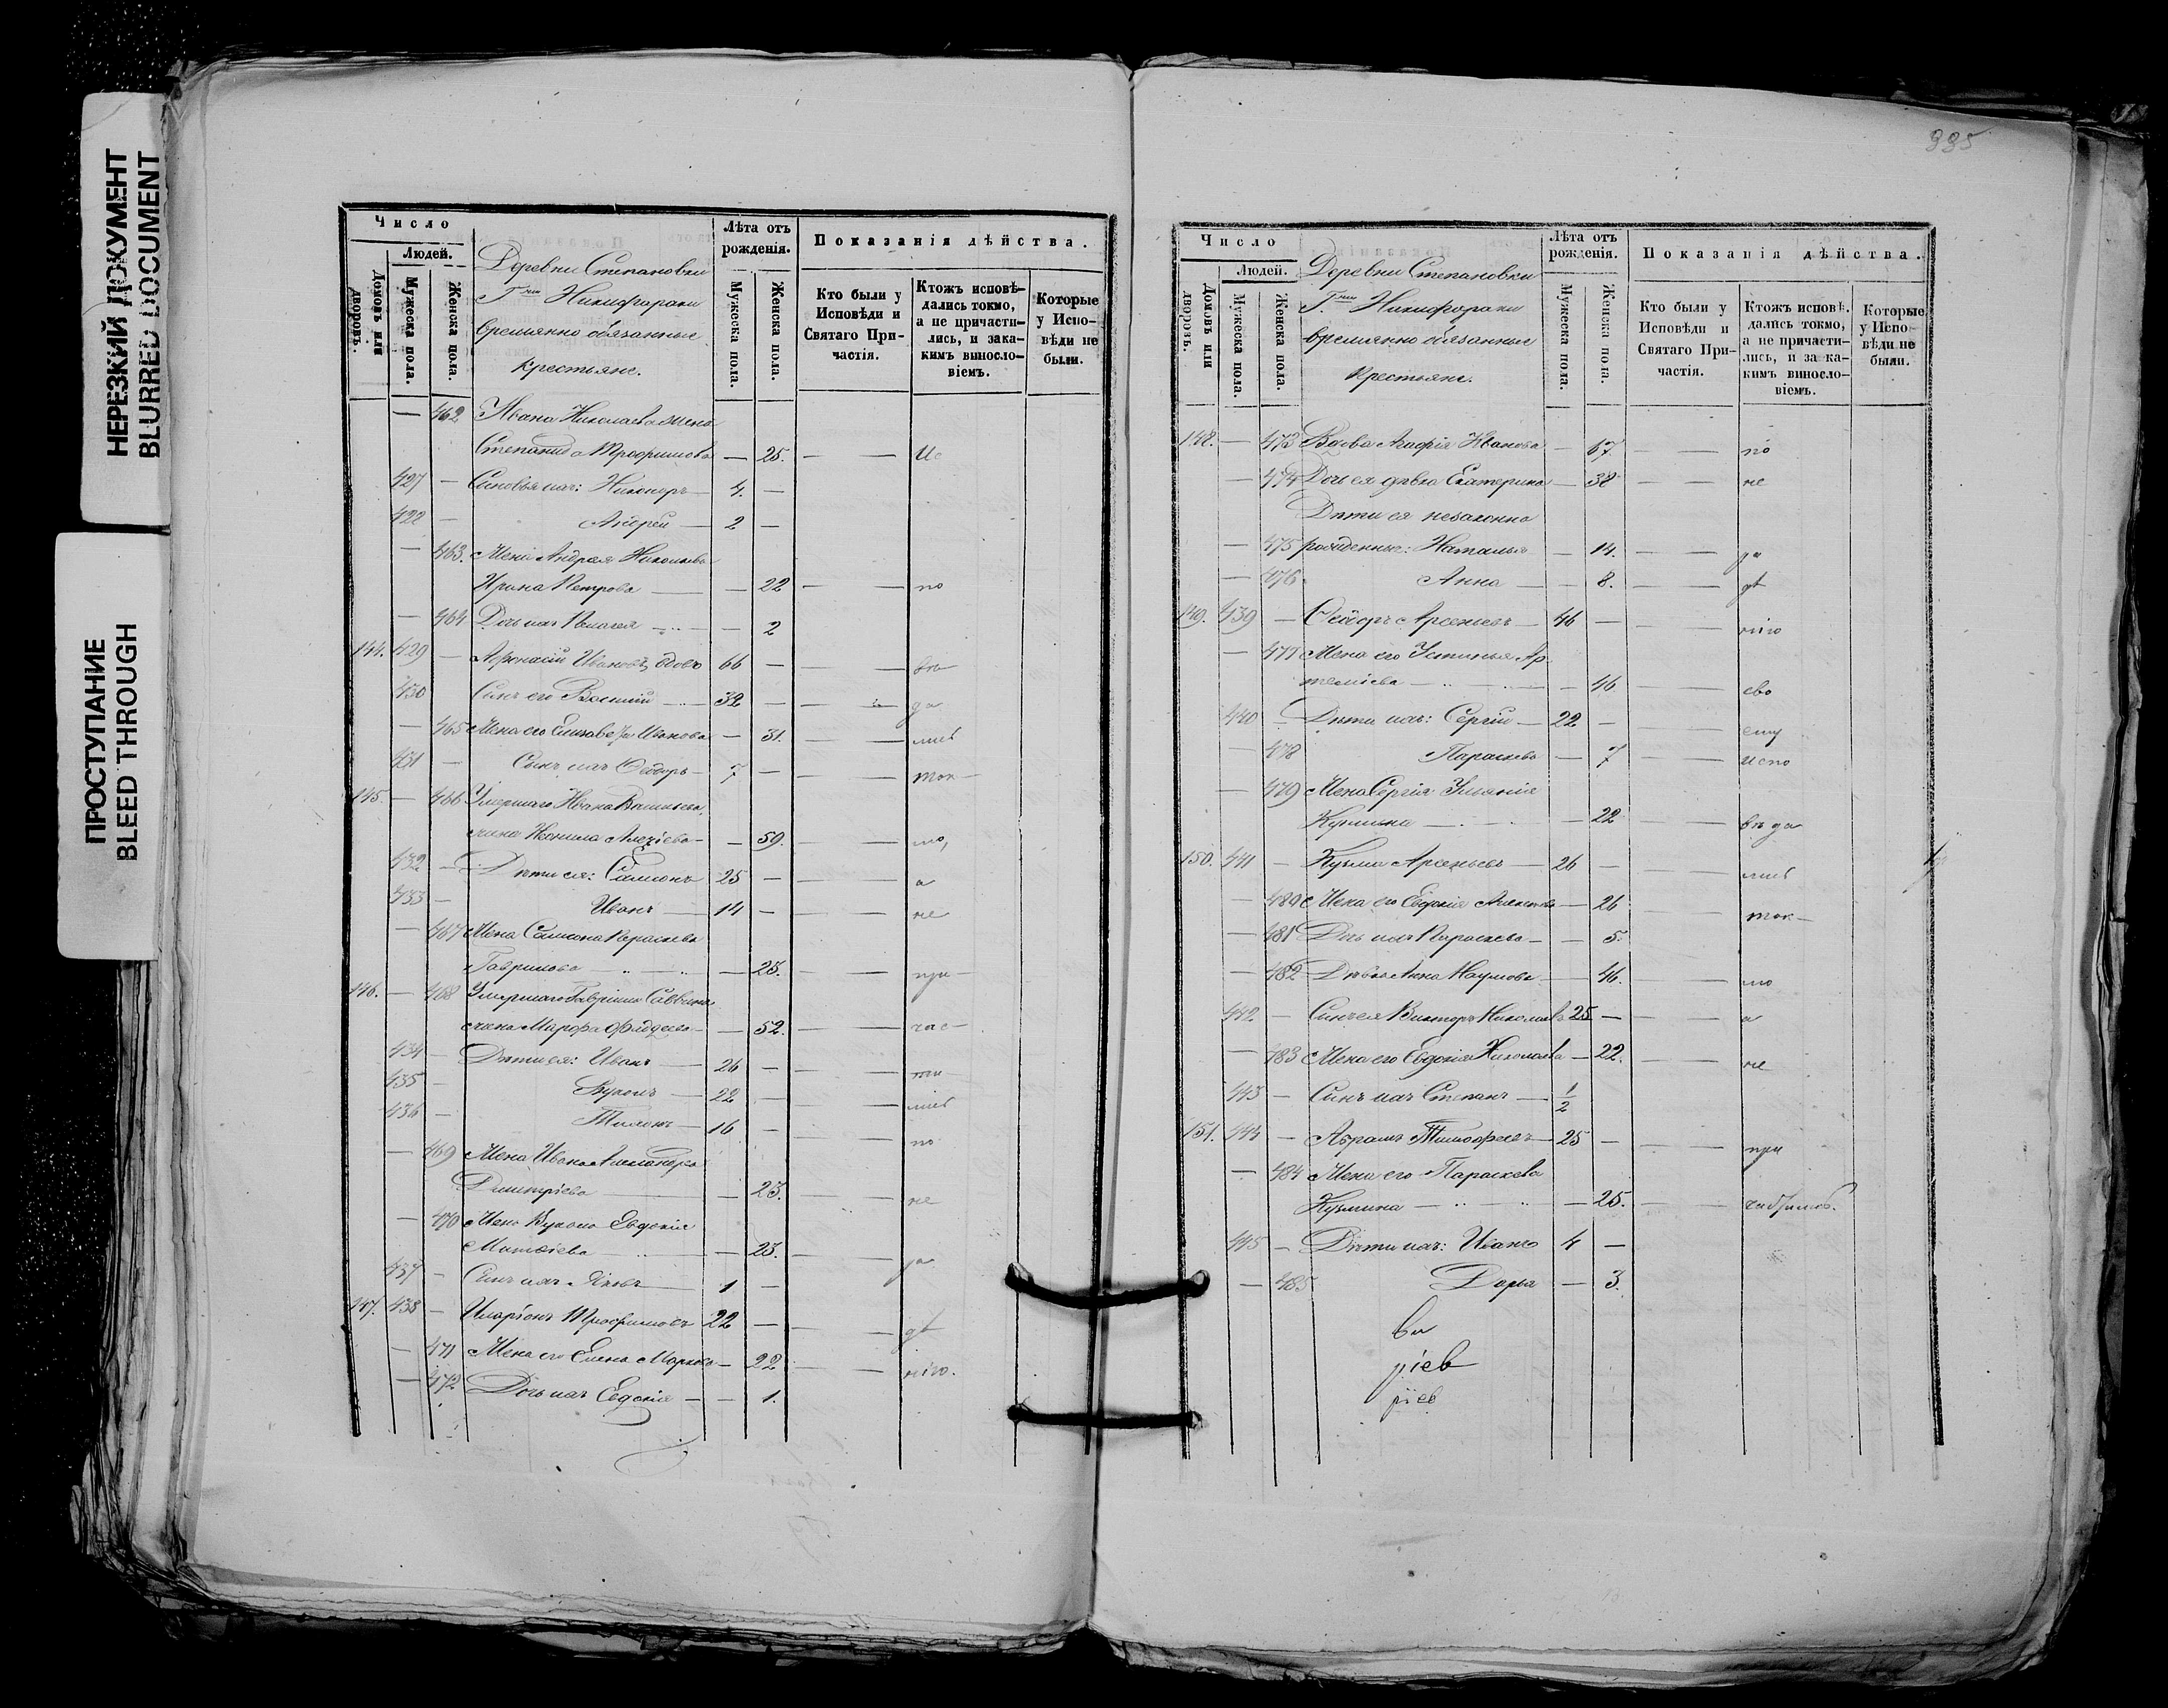 НЕРЕЗКИЙ ДОКУМЕНТ
BLURRED DOCUMENT
ПРОСТУПАНИЕ
BLEED THROUGH
Число
Людей.
Домовъ или дворовъ.
Мужеска пола.
Женска пола.
Деревни Степановки
Г. Никифораки
временно обязанные
крестьяне.
Лѣта отъ рожденія.
Мужеска пола.
Женска пола.
Показанія дѣйства.
Кто были у Исповѣди и Святаго Причастія.
Ктожъ исповѣдались токмо, а не причастились, и закакимъ винословіемъ.
Которые у Исповѣди не были.
— 462 Ивана Николаева жена
Степанида Трофимова — 25. — — Ис
427 — Сыновья ихъ: Никаноръ — 4. —
428 — Андрей — 2 —
— 463. Жена Андрея Николаева
Ирина Петрова — — 22 — — по
— 464 Дочь ихъ Пелагея — — 2
144. 429 — Афонасій Ивановъ, вдовъ 66 — — — вѣ
430 — Сынъ его Василій — 32 — — — да
— 465 Жена его Елизавета Иванова — 31. — — лись
431 — Сынъ ихъ Феодоръ — 7 — — — ток
145. — 466 Умершаго Ивана Васильева,
жена Неонила Алексіева — — 59. — — мо,
432 — Дѣти ея: Самсонъ 25 — — — а
433 — Иванъ — 14 — — — не
— 467 Жена Самсона Параскева
Гаврилова — — 25. — — при
146. — 468 Умершаго Гавріила Саввина
жена Марфа Фаддеева — — 52. — — час
434 — Дѣти ея: Иванъ — 26 — — — ти
435 — Вуколъ — 22 — — — лись
436 — Тихонъ — 16 — — — по
— 469 Жена Ивана Александра
Димитріева — — 23. — — не
— 470 Жена Вукола Евдокія
Матвѣева — — 23. — — ра
437 — Сынъ ихъ Яковъ — 1 —
147. 438 — Иларіонъ Трофимовъ 22 — — — дѣ
— 471 Жена его Елена Маркова — 22 — — нію.
— 472 Дочь ихъ Евдокія — — 1.
335
Число
Людей.
Домовъ или дворовъ.
Мужеска пола.
Женска пола.
Деревни Степановки
Г. Никифораки
временно обязанные
крестьяне.
Лѣта отъ рожденія.
Мужеска пола.
Женска пола.
Показанія дѣйства.
Кто были у Исповѣди и Святаго Причастія.
Ктожъ исповѣдались токмо, а не причастились, и за какимъ винословіемъ.
Которые у Исповѣди не были.
148. — 473 Вдова Агафія Иванова — 67. — — по
— 474 Дочь ея дѣвка Екатерина — 38 — — не
Дѣти ея незаконно
— 475 рожденные: Наталья — 14. — — ра
— 476 Анна — — 8. — — дѣ
149. 439 — Ѳеодоръ Арсеньевъ — 46 — — — нію
— 477 Жена его Устинья Ар
темьева — — 46 — — сво
440 — Дѣти ихъ: Сергій — 22 — — — ему
— 478 Параскева — 7 — — испо
— 479 Жена Сергія Уліанія
Кузьмина — — 22 — — вѣда
150. 441 — Кузьма Арсеньевъ — 26 — — — лись
— 480 Жена его Евдокія — 26 — — ток
— 481 Дочь ихъ Параскева — — 5.
— 482 Анна Наумова — 46. — — мо
442 — Сынъ ея Викторъ Николаевъ 25 — — — а
— 483 Жена его Евдокія Николаева — 22. — — не
443 — Сынъ ихъ Степанъ — 1/2
151. 444 — Абрамъ Тимофеевъ — 25 — — — при
— 484 Жена его Параскева
Кузьмина — — 25. — —
445 — Дѣти ихъ: Иванъ 4 —
— 485 Дарья — 3.
ви
ріев
ріев